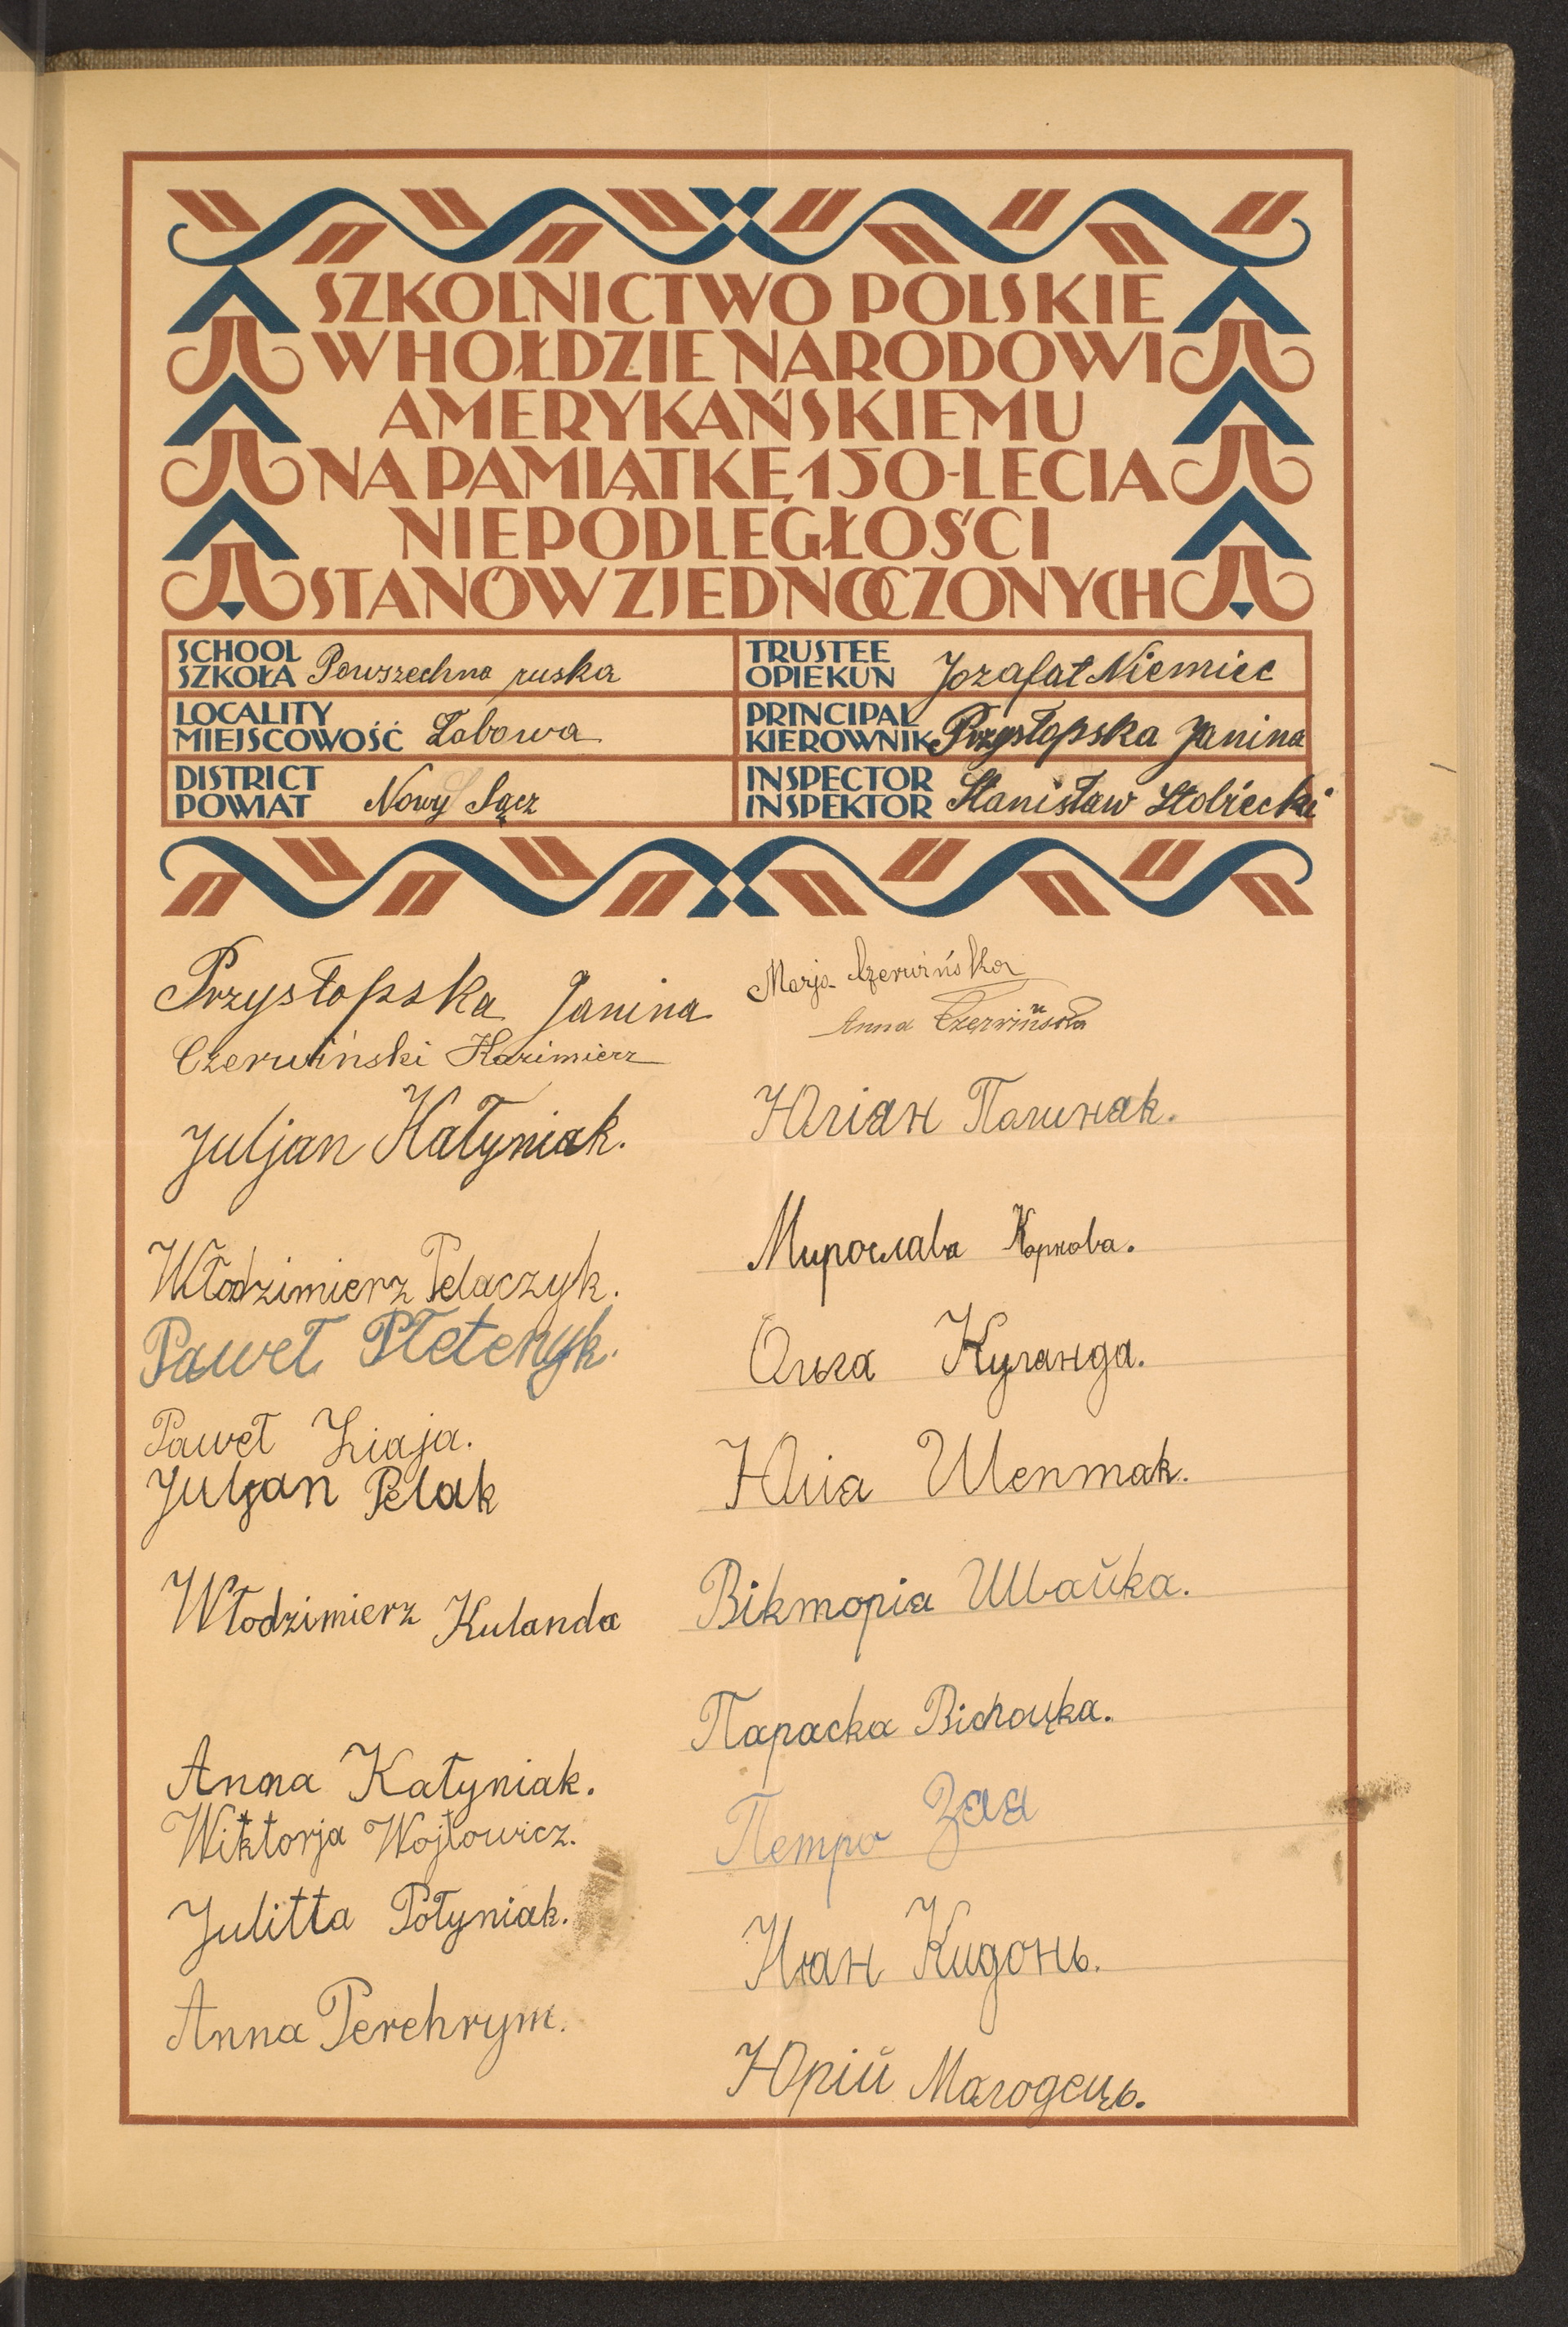 SZKOLNICTWO POLSKIE
W HOŁDZIE NARODOWI
AMERYKAŃSKIEMU
NA PAMIĄTKĘ 150-LECIA
NIEPODLEGŁOŚCI
STANÓW ZJEDNOCZONYCH
SCHOOL
SZKOŁA Powszechna ruska
LOCALITY
MIEJSCOWOŚĆ Łabowa
DISTRICT
POWIAT Nowy Sącz
TRUSTEE
OPIEKUN Jozafat Niemiec
PRINCIPAL
KIEROWNIK Przysłopska Janina
INSPECTOR
INSPEKTOR Stanisław Stobiecki
Przysłopska Janina
Czerwiński Kazimierz
Juljan Hatyniak.
Włodzimierz Pelaczyk.
Paweł Płetenyk.
Paweł Ziaja.
Juljan Pelak
Włodzimierz Kulanda
Anna Katyniak.
Wiktorja Wojtowicz.
Julitta Połyniak.
Anna Perehrym.
Marja Czerwińska
Anna Czerwińska
Юліан Палинак.
Мирослава
Ольга Куланда.
Юлія Шептак.
Вікторія Швайка.
Параска
Петро Зая
Іван Кидонь.
Юрій Малодець.